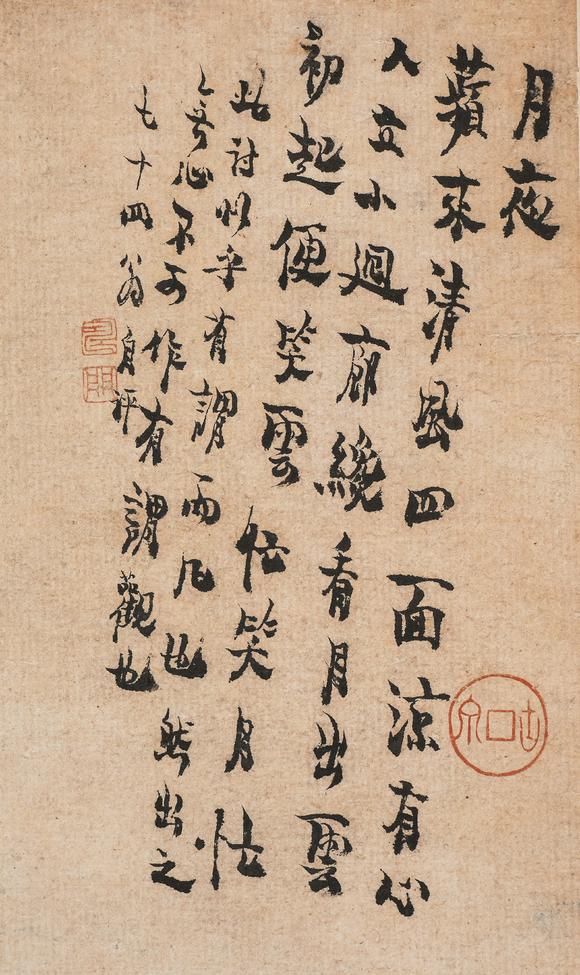 月夜
蘋末清風四面涼有心
人立小迴廊纔看月出雲
初起便笑雲忙笑月忙
此討似乎有謂而凡也
之無心不可作有謂觀也
七十四翁自評